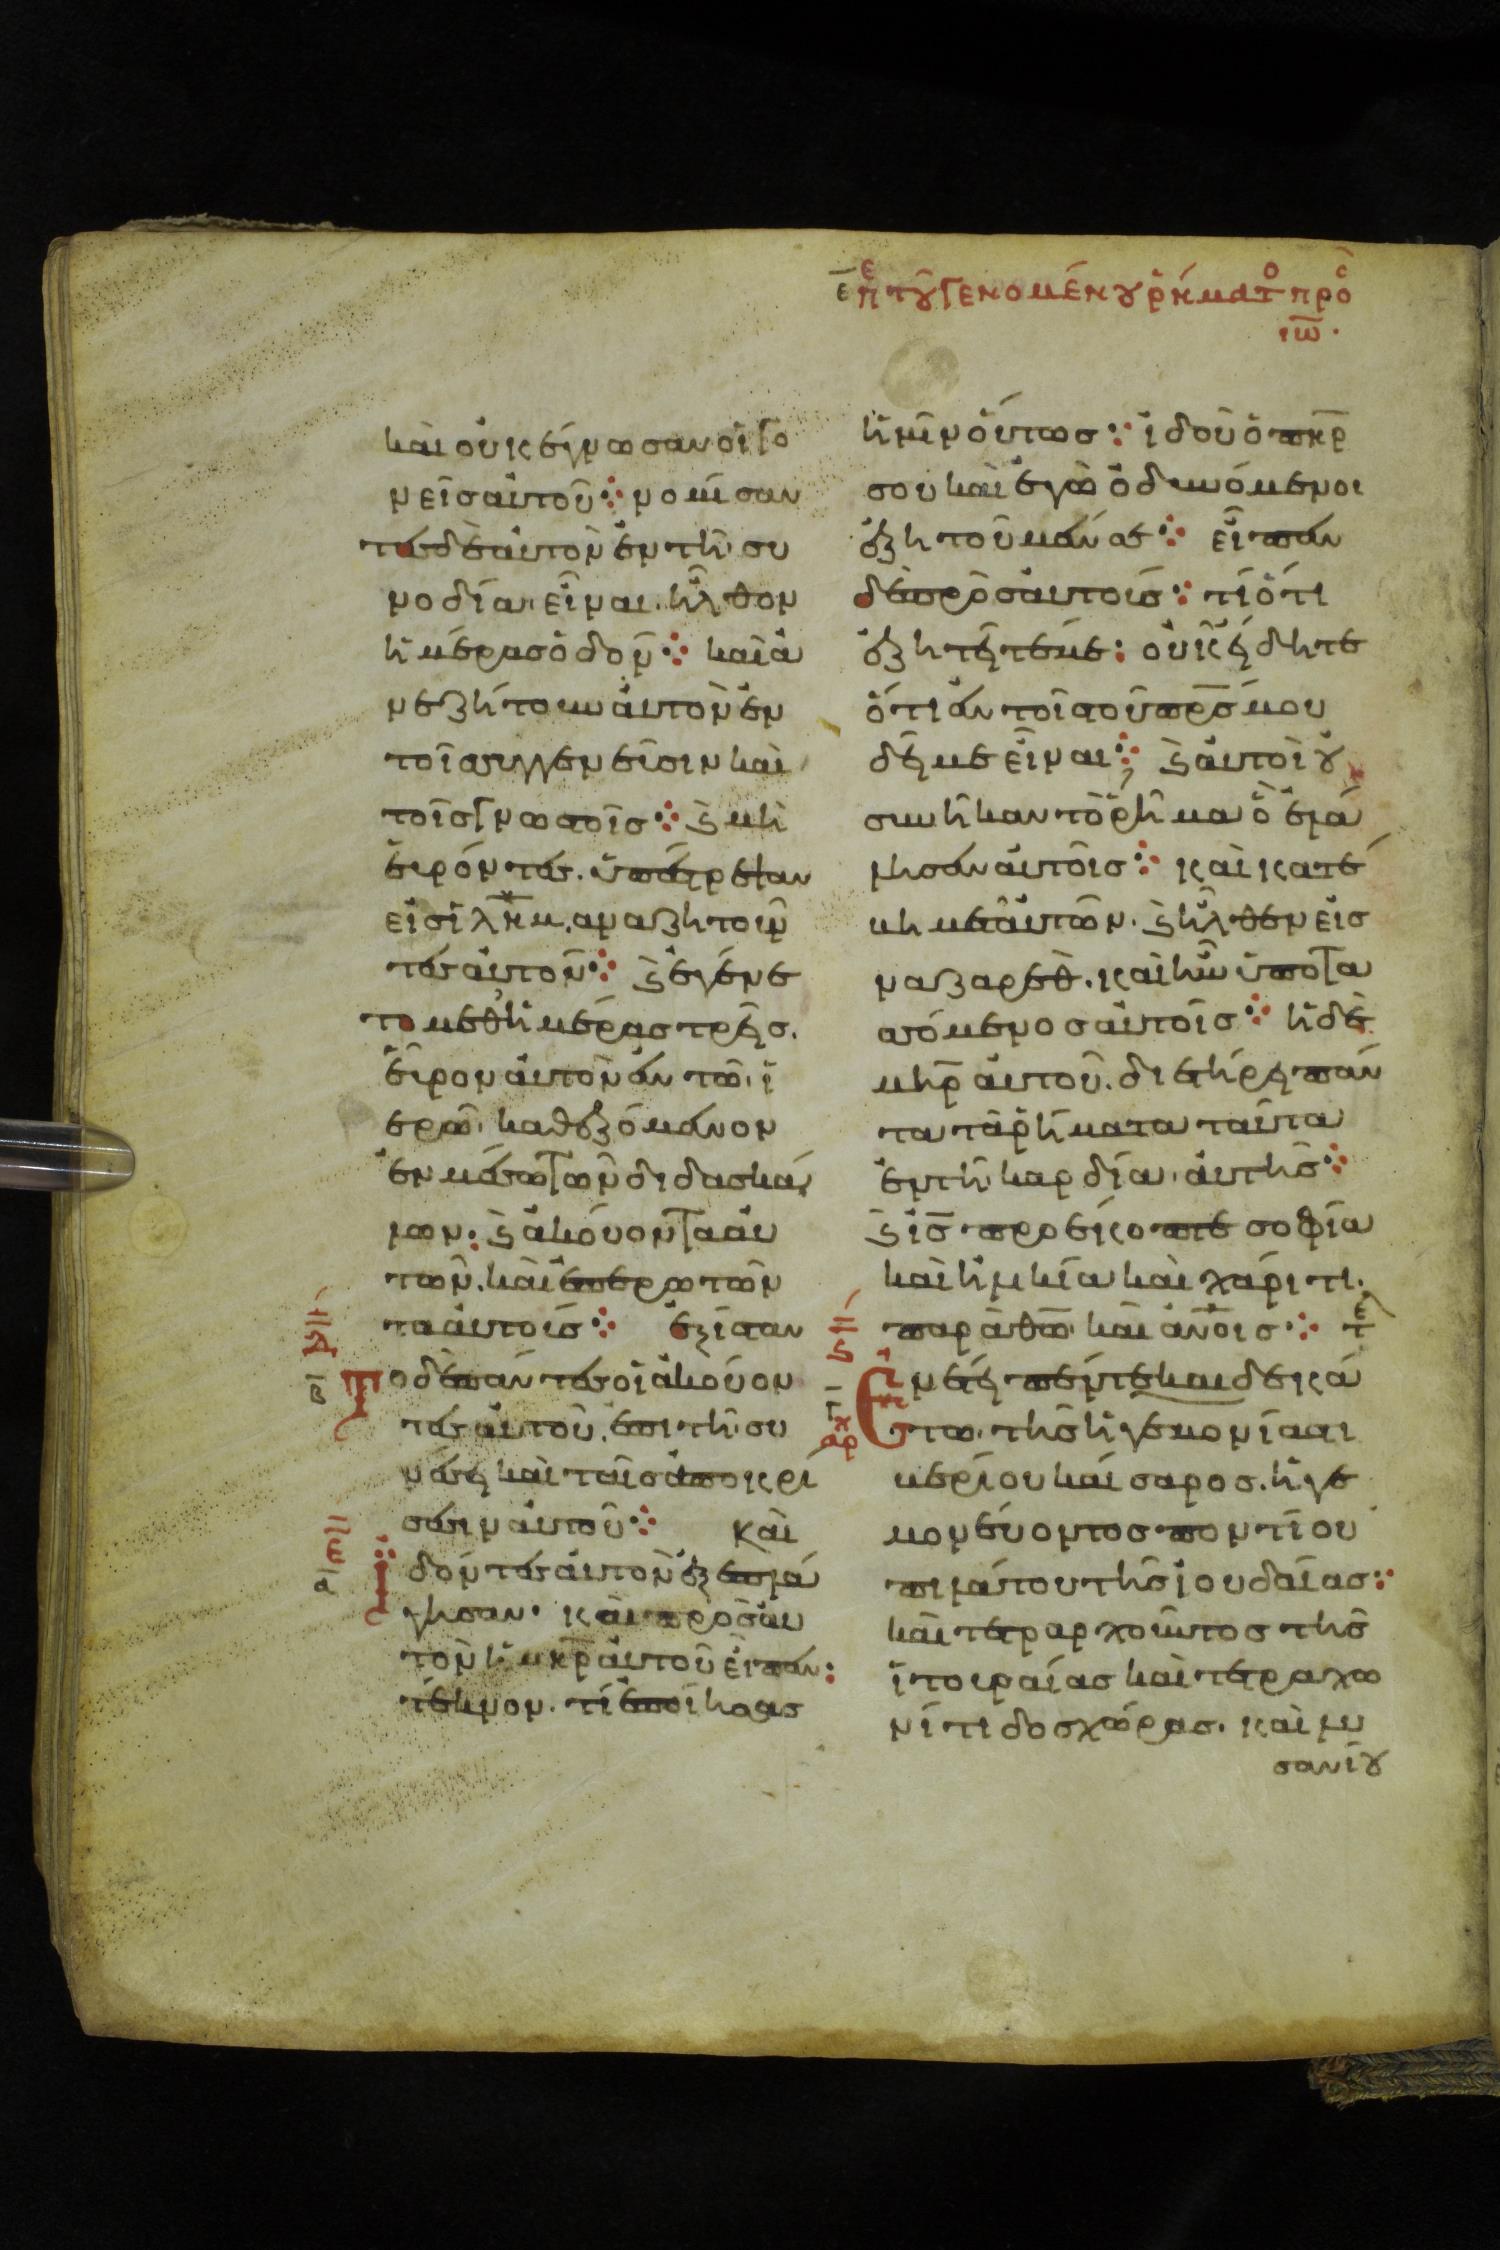 ε̅ πε τȣ γενομένȣ ῥήματο προς
ιω̅.
καὶ οὐκ ἔγνωσαν οἱ γο
νεῖς αὐτοῦ· νομίσαν
τες δὲ αὐτὸν ἐν τῆ συ
νοδία εἶναι. ἦλθον
ἡμέρας ὁδὸν· καὶ ἀ
νεζήτουν αὐτὸν ἐν
τοῖς συγγενεῦσιν καὶ
τοῖς γνωστοῖς· ϗ μὴ
εὑρόντες. ὑπέστρεψαν
εἰς ἰλη̅μ, αναζητοῦν
τες αὐτὸν· ϗ ἐγένε
το μεθ' ἡμέρας τρεῖς.
εὗρον αὐτὸν ἐν τῶ ἱ
ερῶ καθεζόμενον
ἐν μέσω τῶν διδασκά
λων· ϗ ἀκούοντα αὐ
τῶν. καὶ ἐπερωτῶν
τα αὐτούς· ἐξίσταν
Το δὲ πάντες οἱ ἀκούον
τες αὐτοῦ. ἐπι τῆ συ
νέσει καὶ ταῖς ἀποκρί
σεσιν αὐτοῦ· Καὶ
Ἰδόντες αὐτὸν ἐξεπλά
γησαν· καὶ πρὸς αὐ
τὸν ἡ μη̅ρ αὐτοῦ εἶπεν:
τέκνον. τί ἐποίησας
ἡμῖν οὕτως· ἰδοῦ ὁ πη̅ρ
σου καὶ ἐγὼ ὀδυνόμενοι
ἐζητοῦμέν σε· εἶπεν
δὲ πρὸς αὐτούς· τί ὅτι
ἐζητεῖτέ με: οὐκ ἤδητε
ὅτι ἐν τοῖς τοῦ πρ̅ς μου
δεῖ με εἶναι· ϗ αὐτοὶ ȣ
συνῆκαν τὸ ῥῆμα ὃ ἐλά
λησεν αὐτοῖς· καὶ κατέ
βη μετ αὐτῶν. ϗ ἦλθεν εἰς
ναζαρεθ. καὶ ἦν ὑποτα
σσόμενος αὐτοῖς· ἡ δὲ
μηρ̅ αὐτοῦ. διετήρει πάν
τα τὰ ῥήματα ταῦτα
ἐν τῆ καρδία αὐτῆς·
ϗ ις̅ προέκοπτε σοφία
καὶ ἡλικία καὶ χάριτι.
παρὰ θω̅ καὶ ἀν̅οις· τε
Ἐν ἔτει πεντεκαιδεκά
τω τῆς ἡγεμονίας τι
βερίου καίσαρος. ἡγε
μονεύοντος ποντίου
πιλάτου τῆς ἰουδαίας·
καὶ τετραρχοῦντος τῆς
ἰτουραίας καὶ τετραχω
νίτιδος χώρας. καὶ λυ
σανίȣ